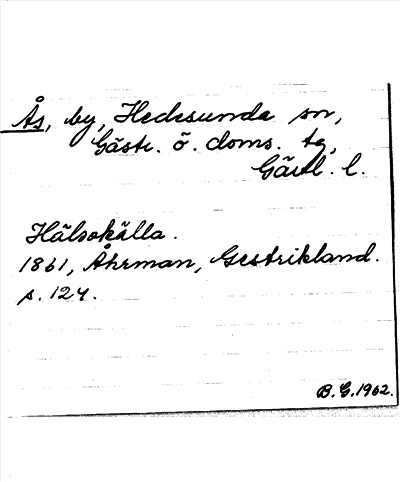 Ås, by, Hedesunda sn,
Gästr. ö. doms. tg,
Gävl. l.
Hälsokälla.
1861, Åhrman, Gestrikland.
s. 124.
B.G. 1962.